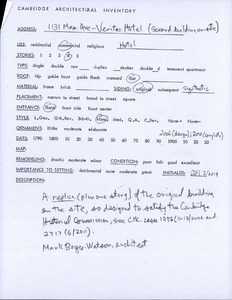 CAMBRIDGE ARCHITECTURAL INVENTORY
ADDRESS: 1131 Mass Ave - Veritas Hotel (Second building on site)
USE: residential commercial religious Hotel
STORIES: 1 2 3 4 5
TYPE: single double row duplex decker double d tenement apartment
ROOF: hip gable front gable flank mansard flat
MATERIAL: frame brick SIDING: original subsequent synthetic
PLACEMENT: narrow to street broad to street square
ENTRANCE: front side front center
STYLE: L.Geo. Gk.Rev. Ital. Mans. Q.A. C.Rev. None
ORNAMENT: little moderate elaborate
DATE: 1790 1800 10 20 30 40 50 60 70 80 90 1900 10 20 30
MAP:
REMODELING: drastic moderate minor CONDITION: poor fair good excellent
IMPORTANCE TO SETTING: detrimental none moderate great INITIALED:
DESCRIPTION:
A replica (plus one story) of the original building
on the site, so designed to satisfy the Cambridge
Historical Commission, see CHC cases
2717 (6/2011).
Mark Boyes-Watson, architect